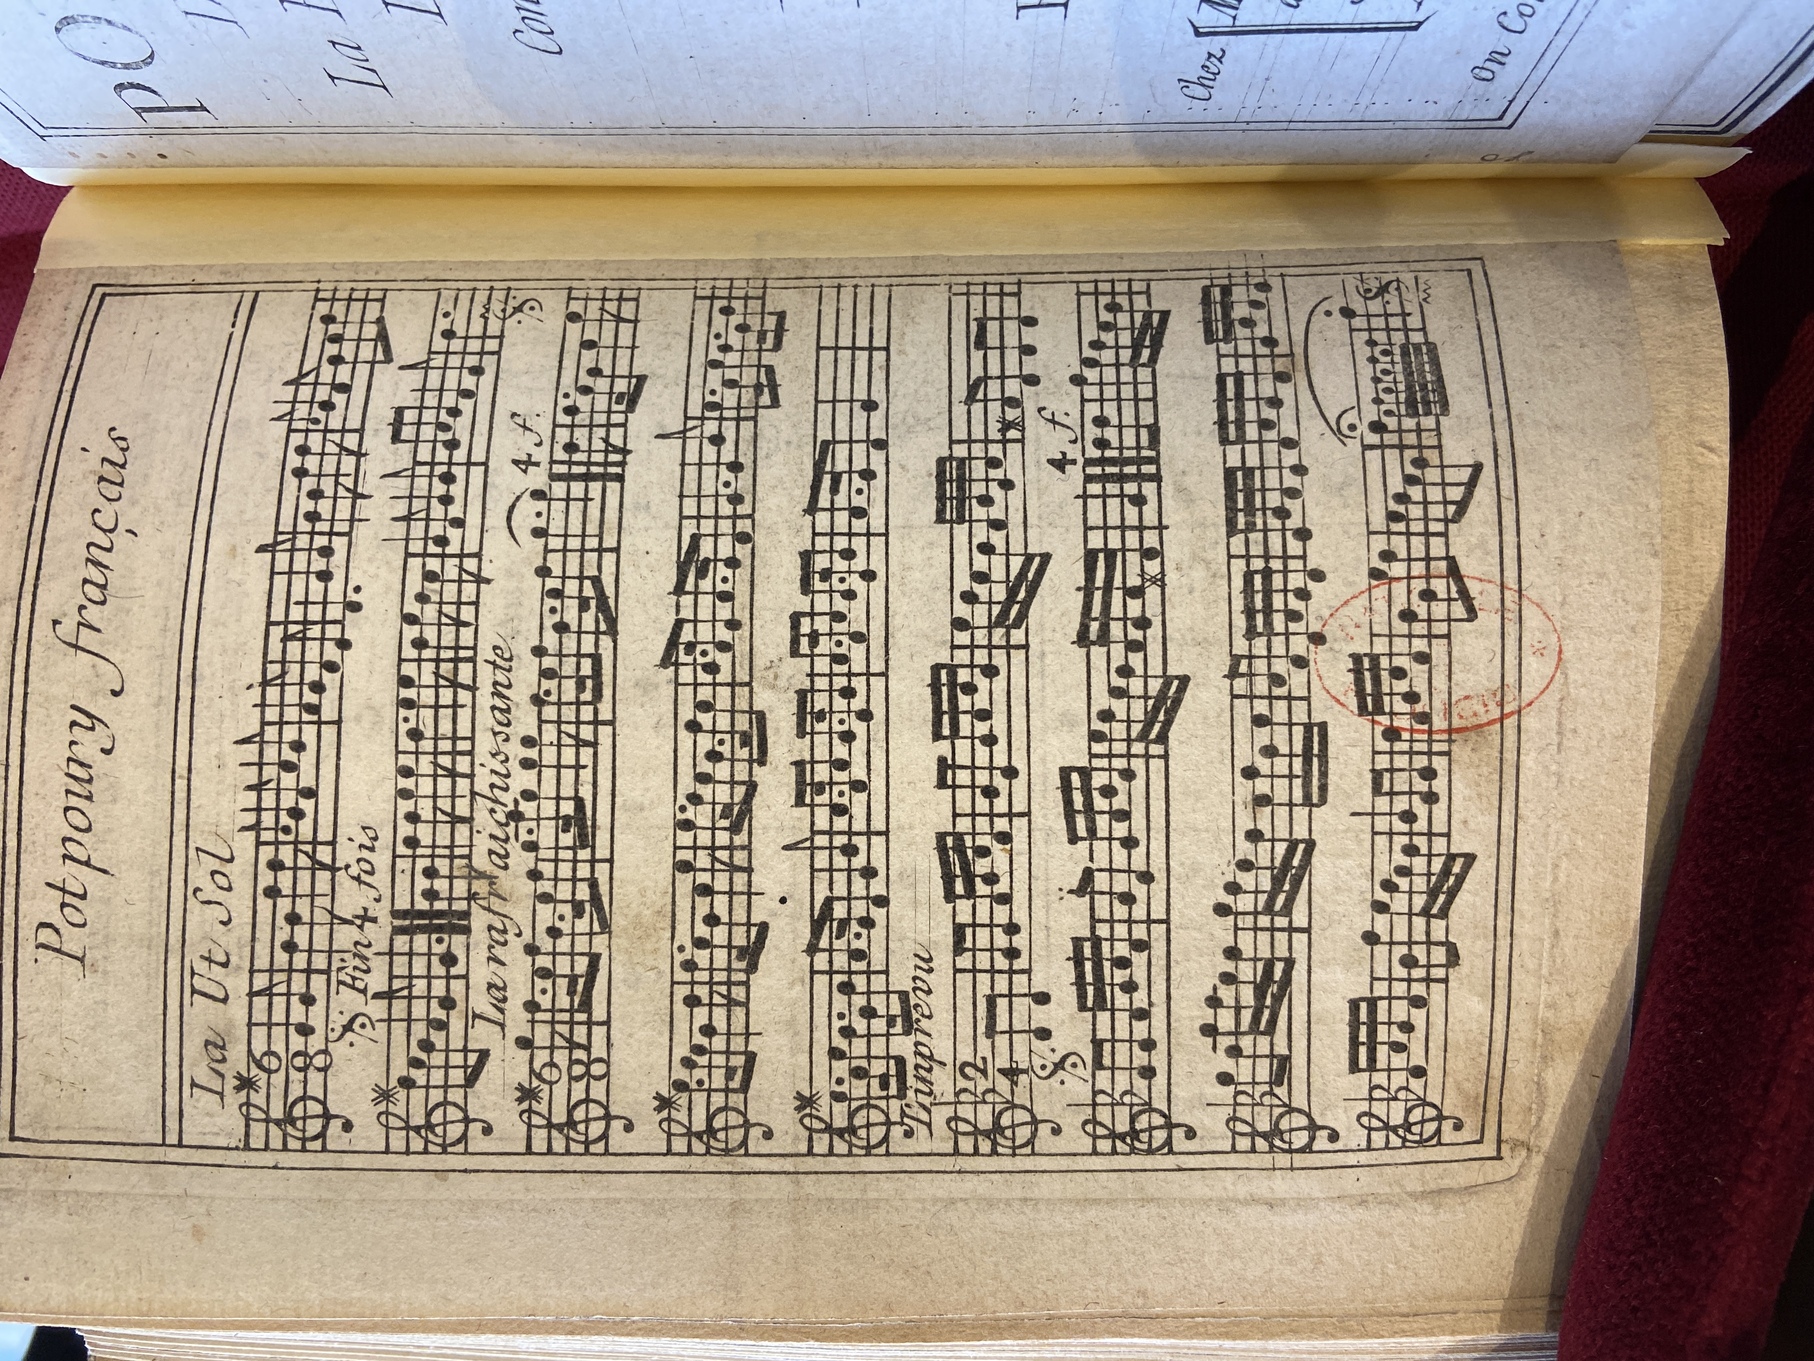 Pot poury français
La Ut Sol
6
8
Fin 4 fois
La rafraichissante
4 f.
6
8
L'inprevu
2
4
4 f.
PO
La
Con
Chez
On Co